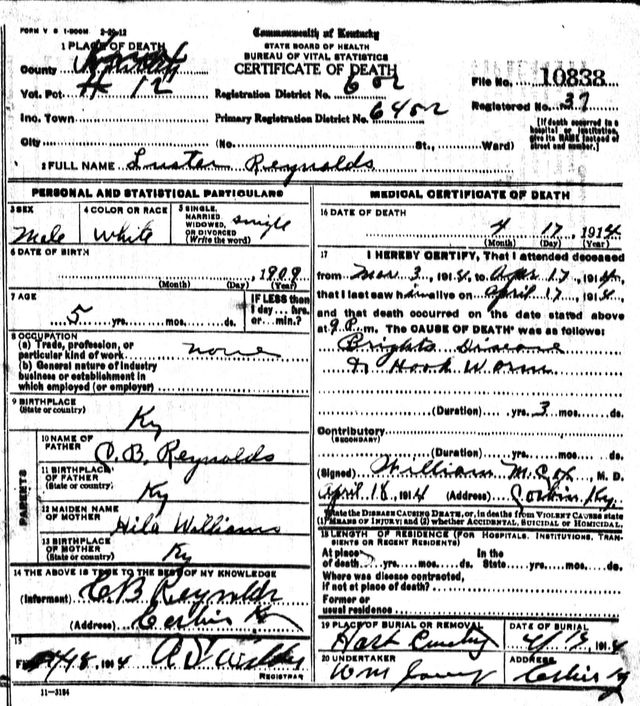 FORM V S 1-500M 2-29-12
Commonwealth of Kentucky
STATE BOARD OF HEALTH
BUREAU OF VITAL STATISTICS
CERTIFICATE OF DEATH
1 PLACE OF DEATH
County
Vot. Pct. # 12
Inc. Town
City (No. St., Ward)
Registration District No. 602
Primary Registration District No. 6402
File No. 10838
Registered No. 37
[If death occurred in a hospital or institution, give its NAME instead of street and number.]
2 FULL NAME Luster Reynolds
PERSONAL AND STATISTICAL PARTICULARS
3 SEX Male
4 COLOR OR RACE White
5 SINGLE, MARRIED, WIDOWED, OR DIVORCED (Write the word) Single
6 DATE OF BIRTH
, 1909
(Month) (Day) (Year)
7 AGE
5 yrs. mos. ds.
IF LESS than 1 day... hrs. or... min.?
8 OCCUPATION
(a) Trade, profession, or particular kind of work none
(b) General nature of industry business or establishment in which employed (or employer)
9 BIRTHPLACE
(State or country) Ky
PARENTS
10 NAME OF FATHER C. B. Reynolds
11 BIRTHPLACE OF FATHER
(State or country) Ky
12 MAIDEN NAME OF MOTHER Hila Williams
13 BIRTHPLACE OF MOTHER
(State or country) Ky
14 THE ABOVE IS TRUE TO THE BEST OF MY KNOWLEDGE
(Informant) C B Reynolds
(Address) Corbin Ky
15
Filed 4/18, 1914
REGISTRAR
11-3184
MEDICAL CERTIFICATE OF DEATH
16 DATE OF DEATH
4 17, 1914
(Month) (Day) (Year)
17 I HEREBY CERTIFY, That I attended deceased
from Mar 3, 1914, to Apr 17, 1914,
that I last saw him alive on April 17, 1914
and that death occurred on the date stated above
at 9 P. m. The CAUSE OF DEATH* was as follows:
Brights Disease
& Hook Worm
(Duration) yrs. 3 mos. ds.
Contributory
(SECONDARY)
(Duration) yrs. mos. ds.
(Signed) William M. Cox, M. D.
April 18, 1914 (Address) Corbin Ky.
*State the DISEASE CAUSING DEATH, or, in deaths from VIOLENT CAUSES state (1) MEANS OF INJURY; and (2) whether ACCIDENTAL, SUICIDAL or HOMICIDAL.
18 LENGTH OF RESIDENCE (FOR HOSPITALS, INSTITUTIONS, TRANSIENTS OR RECENT RESIDENTS)
At place of death yrs. mos. ds. In the State yrs. mos. ds.
Where was disease contracted, if not at place of death?
Former or usual residence
19 PLACE OF BURIAL OR REMOVAL
Hart
DATE OF BURIAL
1914
20 UNDERTAKER
Wm
ADDRESS
Corbin Ky